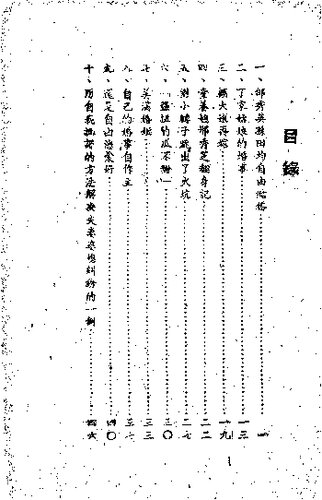 目錄
一、邰秀英孫田均自由結婚……一
二、丁家姑娘的婚事……一三
三、楊大娘再嫁……一九
四、童養媳邢秀芝翻身記……二二
五、劉小辮子跳出了火坑……二七
六、「強扭的瓜不甜」……三〇
七、美滿婚姻……三三
八、自己的婚事自作主……三七
九、還是自由戀愛好……四〇
十、用自我批評的方法解決夫妻婆媳糾紛的一例……四六